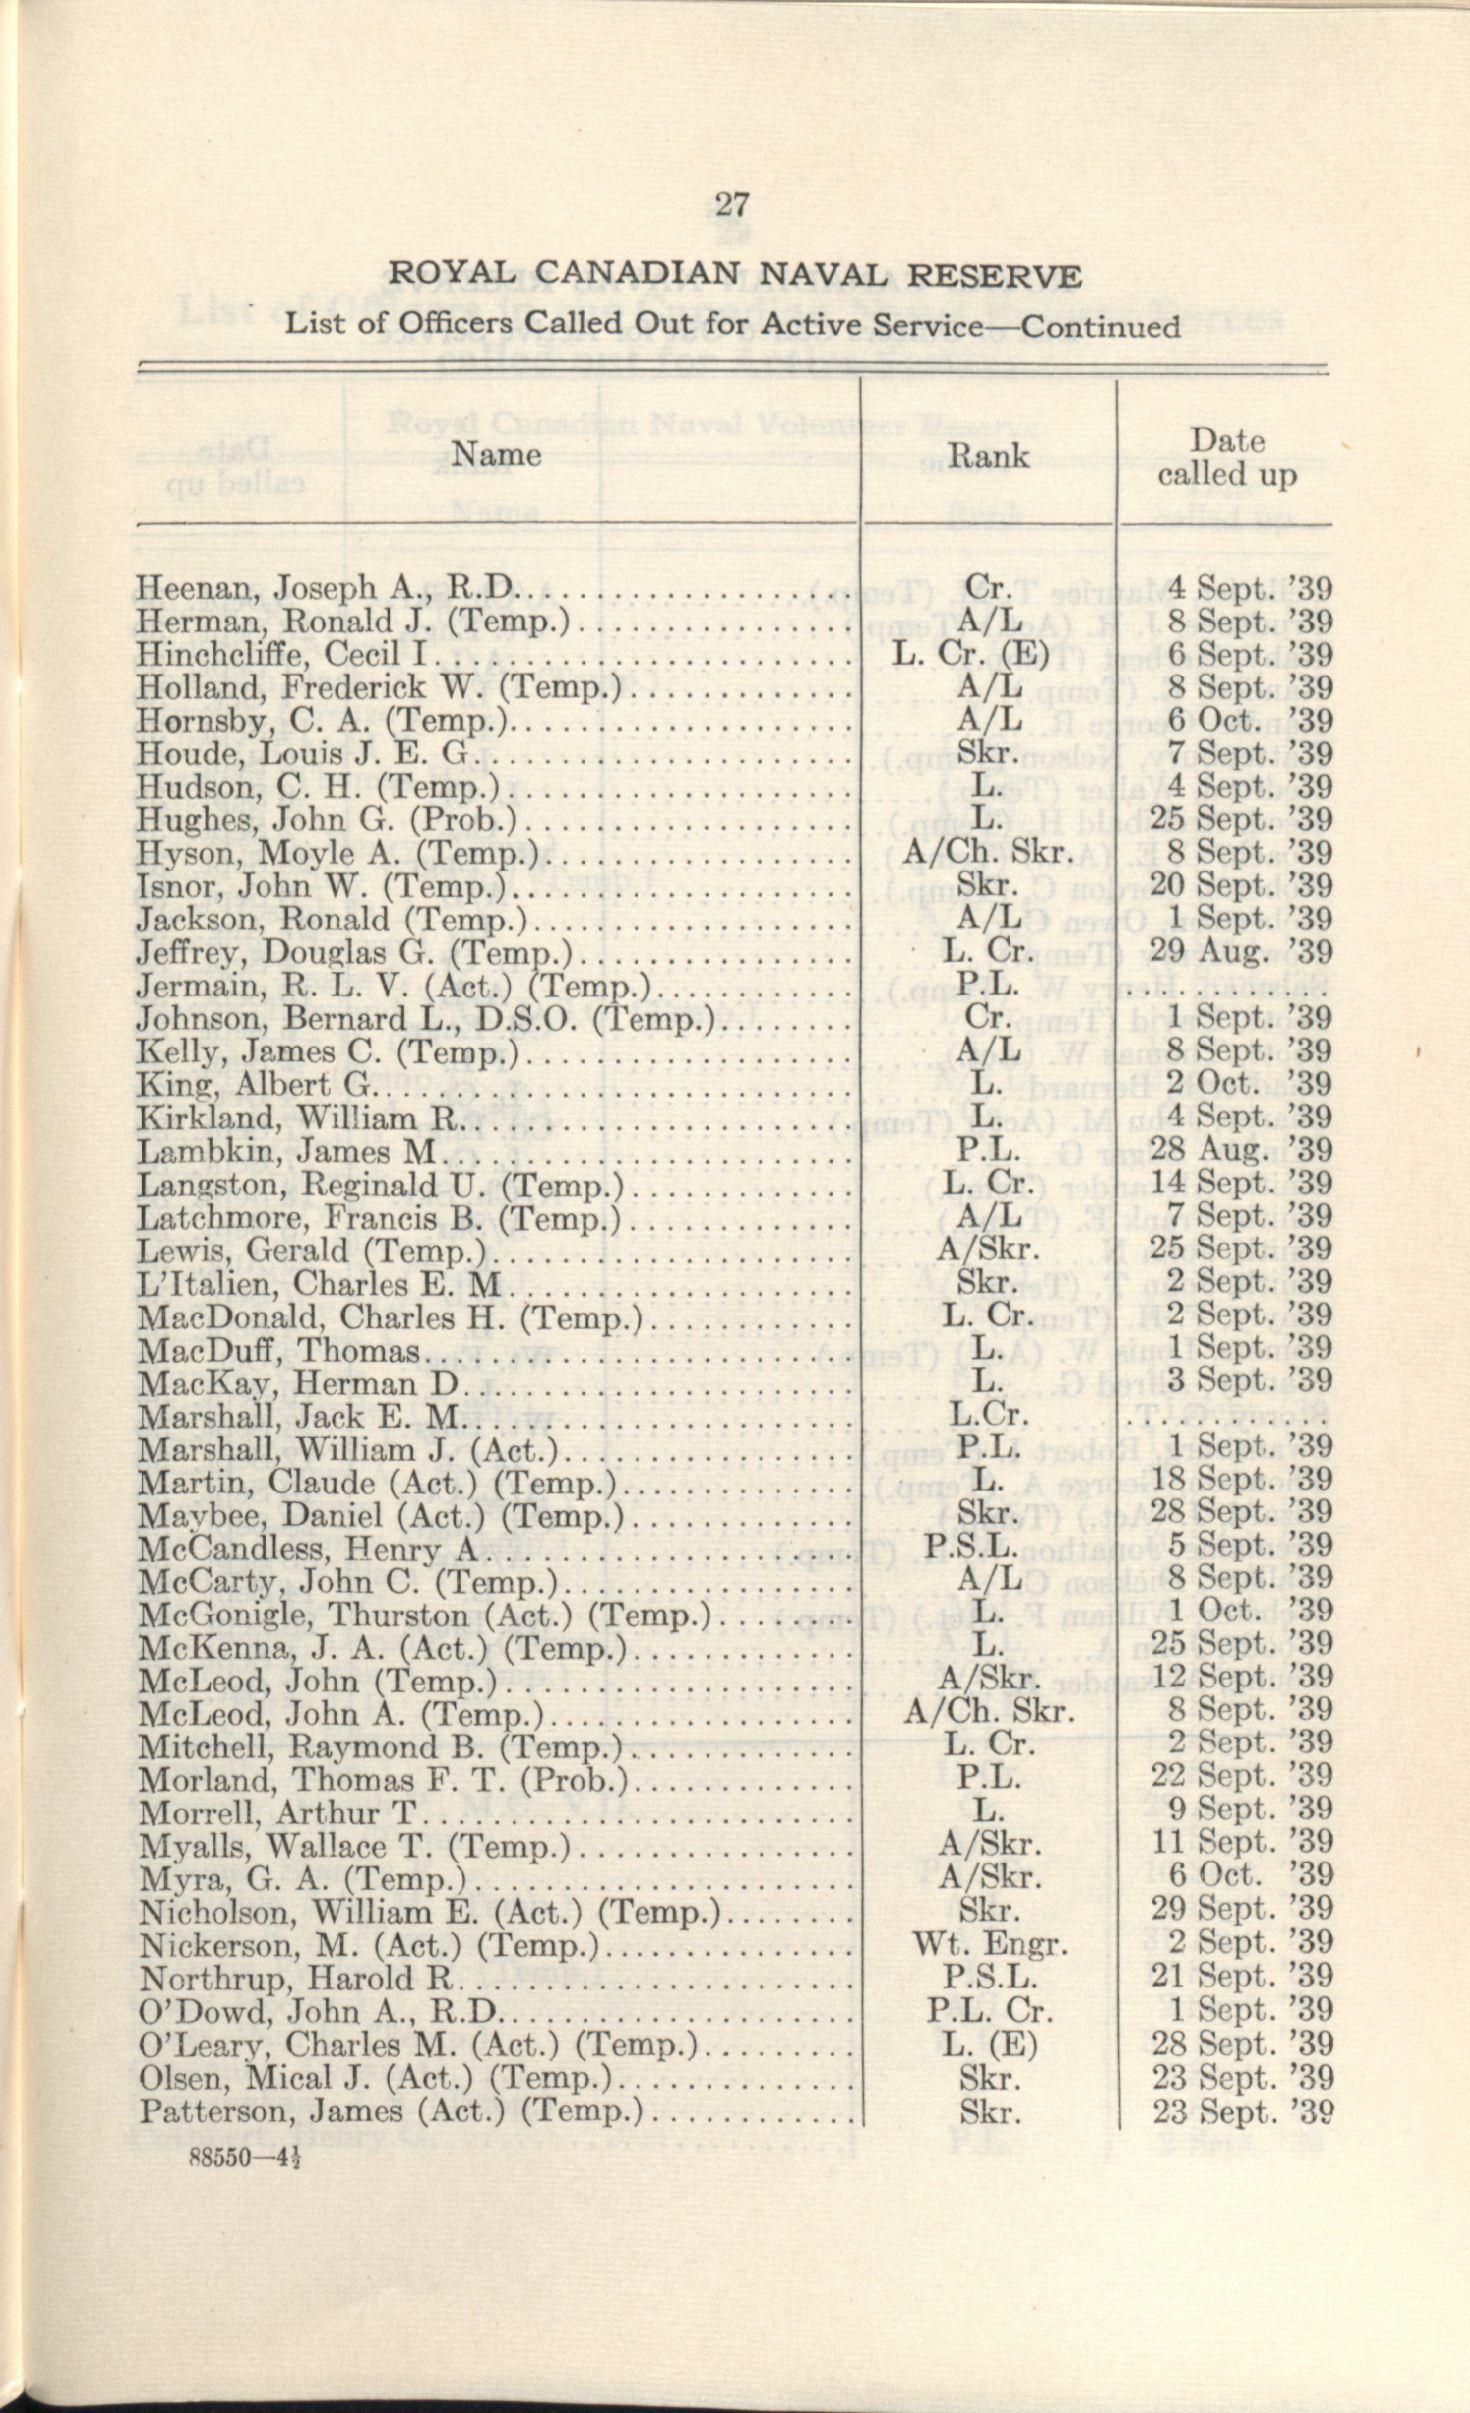 27
ROYAL CANADIAN NAVAL RESERVE
List of Officers Called Out for Active Service—Continued
Name Rank Date called up
Heenan, Joseph A., R.D. Cr. 4 Sept. '39
Herman, Ronald J. (Temp.) A/L 8 Sept. '39
Hinchcliffe, Cecil I. L. Cr. (E) 6 Sept. '39
Holland, Frederick W. (Temp.) A/L 8 Sept. '39
Hornsby, C. A. (Temp.) A/L 6 Oct. '39
Houde, Louis J. E. G. Skr. 7 Sept. '39
Hudson, C. H. (Temp.) L. 4 Sept. '39
Hughes, John G. (Prob.) L. 25 Sept. '39
Hyson, Moyle A. (Temp.) A/Ch. Skr. 8 Sept. '39
Isnor, John W. (Temp.) Skr. 20 Sept. '39
Jackson, Ronald (Temp.) A/L 1 Sept. '39
Jeffrey, Douglas G. (Temp.) L. Cr. 29 Aug. '39
Jermain, R. L. V. (Act.) (Temp.) P.L. ............
Johnson, Bernard L., D.S.O. (Temp.) Cr. 1 Sept. '39
Kelly, James C. (Temp.) A/L 8 Sept. '39
King, Albert G. L. 2 Oct. '39
Kirkland, William R. L. 4 Sept. '39
Lambkin, James M. P.L. 28 Aug. '39
Langston, Reginald U. (Temp.) L. Cr. 14 Sept. '39
Latchmore, Francis B. (Temp.) A/L 7 Sept. '39
Lewis, Gerald (Temp.) A/Skr. 25 Sept. '39
L'Italien, Charles E. M. Skr. 2 Sept. '39
MacDonald, Charles H. (Temp.) L. Cr. 2 Sept. '39
MacDuff, Thomas L. 1 Sept. '39
MacKay, Herman D. L. 3 Sept. '39
Marshall, Jack E. M. L.Cr. ............
Marshall, William J. (Act.) P.L. 1 Sept. '39
Martin, Claude (Act.) (Temp.) L. 18 Sept. '39
Maybee, Daniel (Act.) (Temp.) Skr. 28 Sept. '39
McCandless, Henry A. P.S.L. 5 Sept. '39
McCarty, John C. (Temp.) A/L 8 Sept. '39
McGonigle, Thurston (Act.) (Temp.) L. 1 Oct. '39
McKenna, J. A. (Act.) (Temp.) L. 25 Sept. '39
McLeod, John (Temp.) A/Skr. 12 Sept. '39
McLeod, John A. (Temp.) A/Ch. Skr. 8 Sept. '39
Mitchell, Raymond B. (Temp.) L. Cr. 2 Sept. '39
Morland, Thomas F. T. (Prob.) P.L. 22 Sept. '39
Morrell, Arthur T. L. 9 Sept. '39
Myalls, Wallace T. (Temp.) A/Skr. 11 Sept. '39
Myra, G. A. (Temp.) A/Skr. 6 Oct. '39
Nicholson, William E. (Act.) (Temp.) Skr. 29 Sept. '39
Nickerson, M. (Act.) (Temp.) Wt. Engr. 2 Sept. '39
Northrup, Harold R. P.S.L. 21 Sept. '39
O'Dowd, John A., R.D. P.L. Cr. 1 Sept. '39
O'Leary, Charles M. (Act.) (Temp.) L. (E) 28 Sept. '39
Olsen, Mical J. (Act.) (Temp.) Skr. 23 Sept. '39
Patterson, James (Act.) (Temp.) Skr. 23 Sept. '39
88550—4½